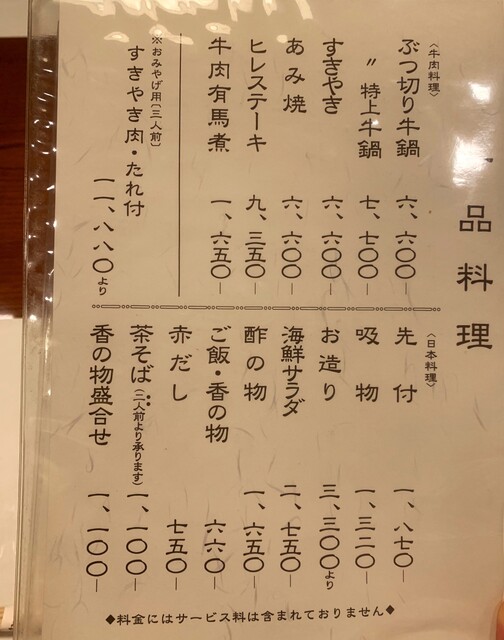 一品料理
〈牛肉料理〉
ぶつ切り牛鍋 六、六〇〇―
〃 特上牛鍋 七、七〇〇―
すきやき 六、六〇〇―
あみ焼 六、六〇〇―
ヒレステーキ 九、三五〇―
牛肉有馬煮 一、六五〇―
※おみやげ用(三人前)
すきやき肉・たれ付 一一、八八〇より
〈日本料理〉
先付 一、八七〇―
吸物 一、三二〇―
お造り 三、三〇〇より
海鮮サラダ 二、七五〇―
酢の物 一、六五〇―
ご飯・香の物 六六〇―
赤だし 七五〇―
茶そば(二人前より承ります) 一、一〇〇―
香の物盛合せ 一、一〇〇―
◆料金にはサービス料は含まれておりません◆